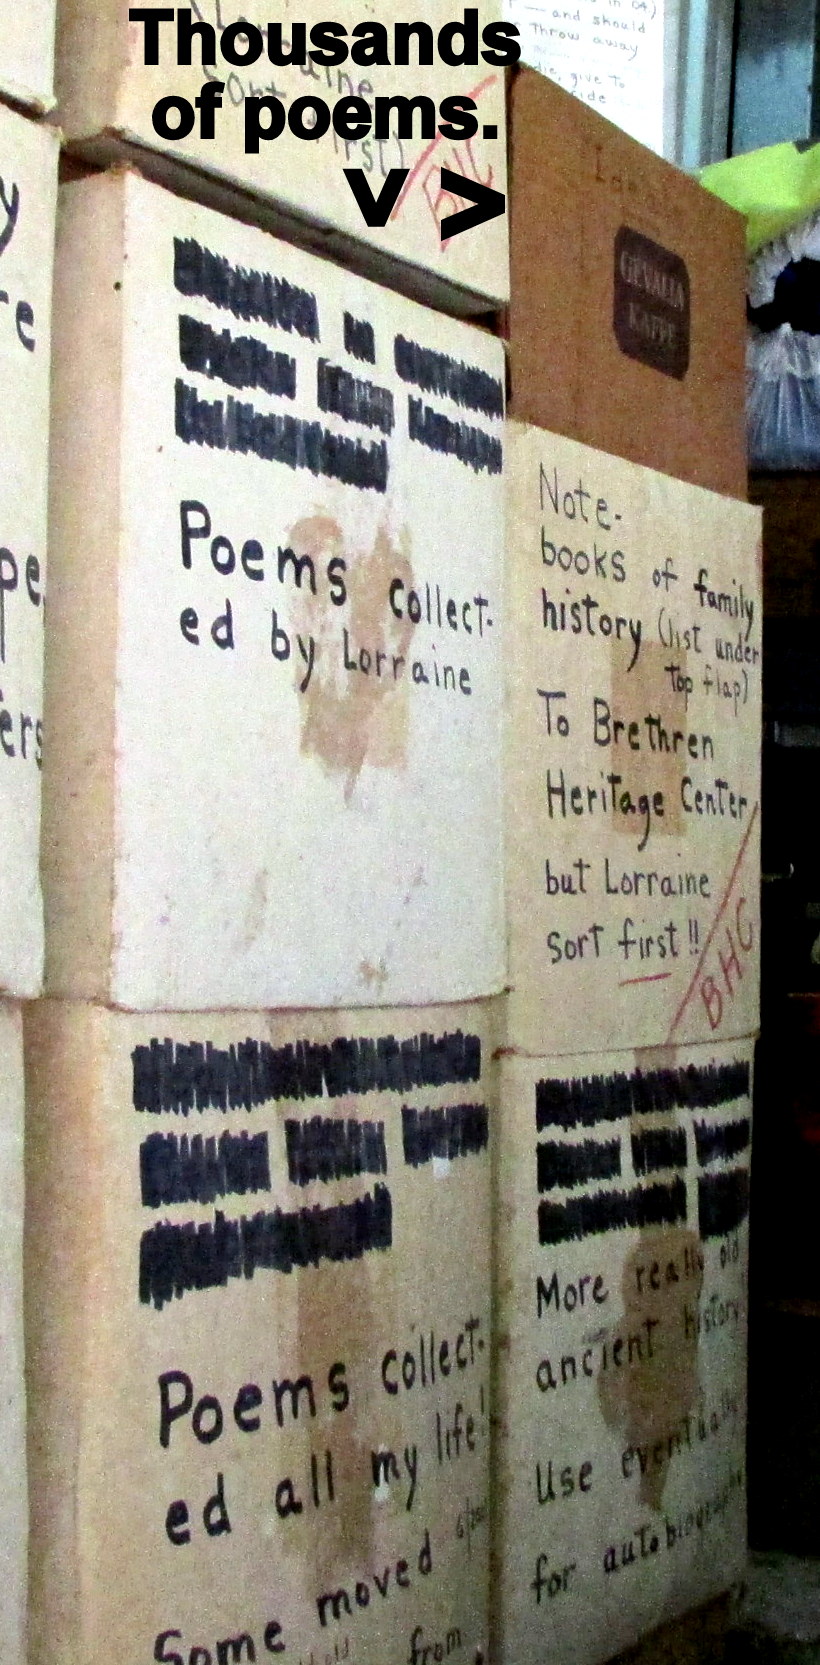 Thousands
of poems.
V >
Lorraine
sort
first)
BHC
in 04)
— and should
throw away
die, give to
GEVALIA
KAFFE
y
re
pe
ers
Poems collect-
ed by Lorraine
Note-
books of family
history (list under
top flap)
To Brethren
Heritage Center
but Lorraine
sort first!!
BHC
Poems collect-
ed all my life!
Some moved
from
More really old
ancient history
Use eventually
for autobiography